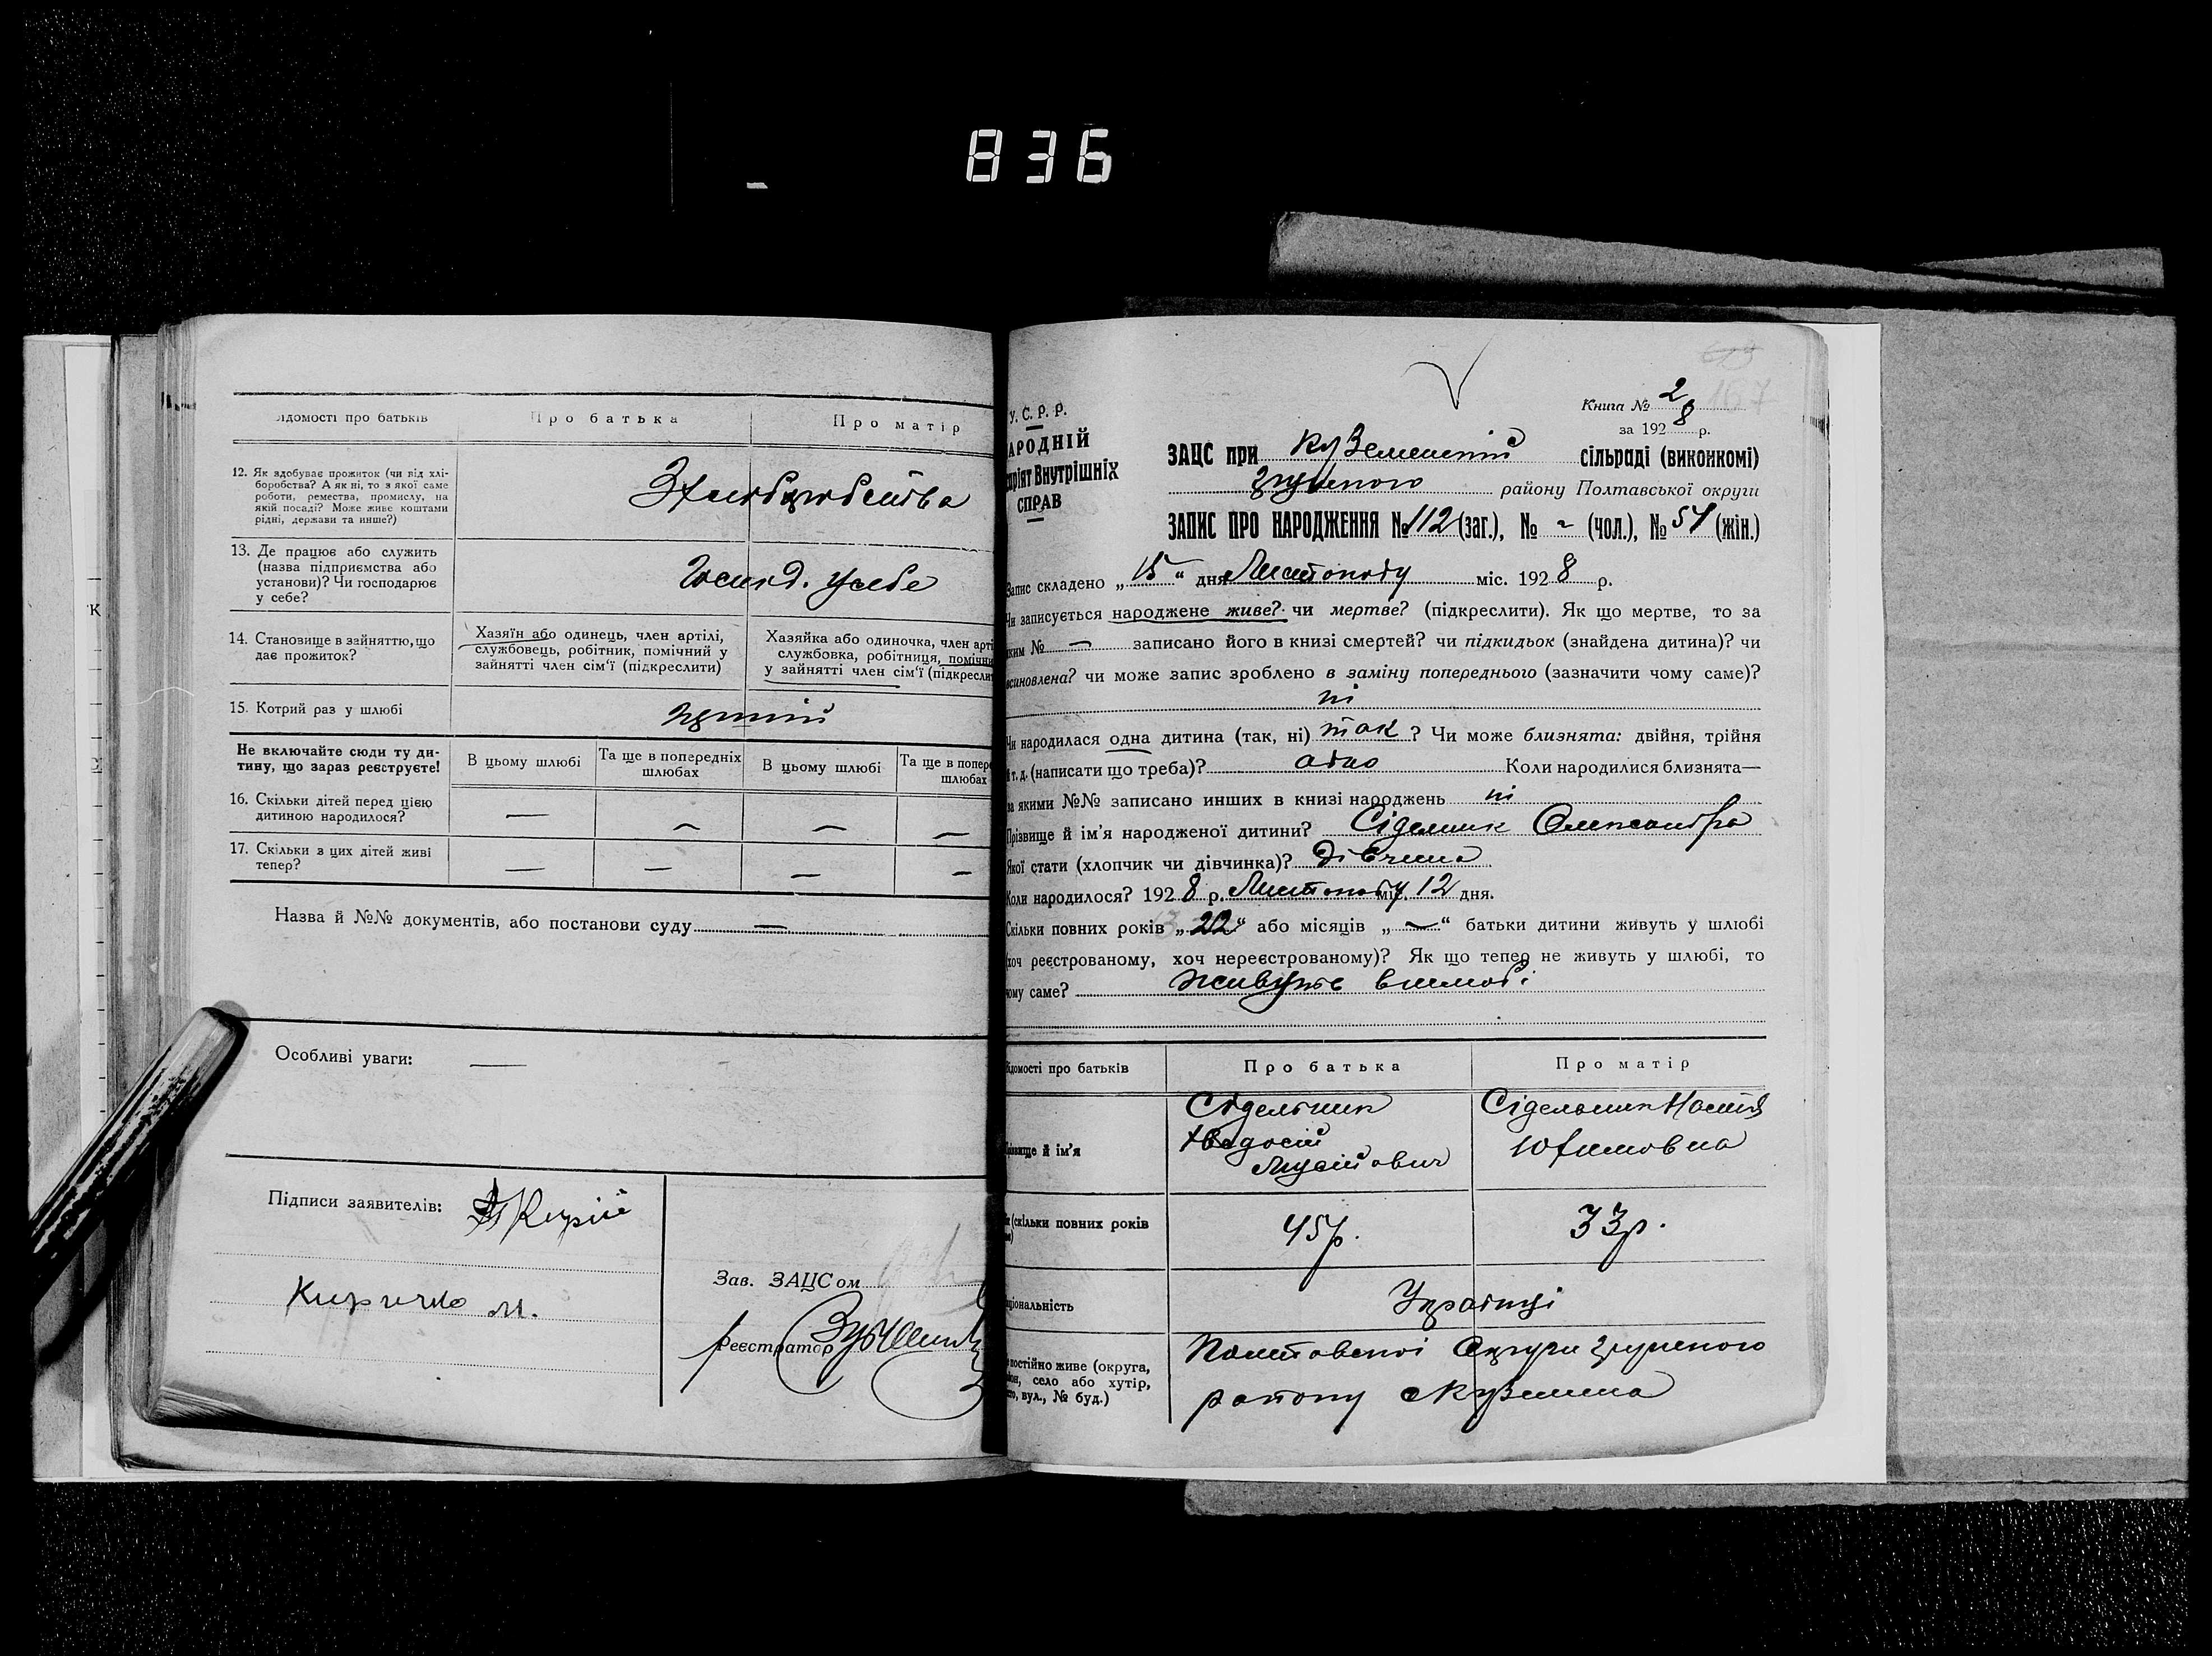 836
К
ідомості про батьків
Про батька
Про матір
12. Як здобуває прожиток (чи від хлі-
боробства? А як ні, то з якої саме
роботи, ремества, промислу, на
якій посаді? Може живе коштами
рідні, держави та инше?)
З хліборобства
13. Де працює або служить
(назва підприємства або
установи)? Чи господарює
у себе?
у себе
14. Становище в зайняттю, що
дає прожиток?
Хазяїн або одинець, член артілі,
службовець, робітник, помічний у
зайнятті член сім'ї (підкреслити)
Хазяйка або одиночка, член арті
службовка, робітниця, помічни
у зайнятті член сім'ї (підкресли
15. Котрий раз у шлюбі
Не включайте сюди ту ди-
тину, що зараз реєструєте!
В цьому шлюбі
Та ще в попередніх
шлюбах
В цьому шлюбі
Та ще в попер
шлюбах
16. Скільки дітей перед цією
дитиною народилося?
— — — —
17. Скільки з цих дітей живі
тепер?
— — — —
Назва й №№ документів, або постанови суду —
Особливі уваги: —
Підписи заявителів:
Киричко М.
Зав. ЗАЦСом
Реєстратор
167
У. С. Р. Р.
АРОДНІЙ
аріят Внутрішніх
СПРАВ
Книга № 2
за 1928 р.
ЗАЦС при сільраді (виконкомі)
району Полтавської округи
ЗАПИС ПРО НАРОДЖЕННЯ № 112 (заг.), № - (чол.), № 54 (жін.)
Запис складено „15“ дня Листопаду міс. 1928 р.
Чи записується народжене живе? чи мертве? (підкреслити). Як що мертве, то за
яким № — записано його в книзі смертей? чи підкидьок (знайдена дитина)? чи
всиновлена? чи може запис зроблено в заміну попереднього (зазначити чому саме)?
ні
Чи народилася одна дитина (так, ні) так? Чи може близнята: двійня, трійня
й т. д. (написати що треба)? одно Коли народилися близнята—
за якими №№ записано инших в книзі народжень ні
Прізвище й ім'я народженої дитини? Сідельник Олександра
Якої стати (хлопчик чи дівчинка)? Дівчина
Коли народилося? 1928 р. Листопаду міс. 12 дня.
Скільки повних років „22“ або місяців „—“ батьки дитини живуть у шлюбі
хоч реєстрованому, хоч нереєстрованому)? Як що тепер не живуть у шлюбі, то
чому саме? живуть в шлюбі
ідомості про батьків
Про батька
Про матір
ізвище й ім'я
Сідельник
Мусійович
Сідельник Настя
Юхимовна
(скільки повних років
45р.
33р.
ціональність
Українці
постійно живе (округа,
он, село або хутір,
то, вул., № буд.)
Полтавської Округи
району